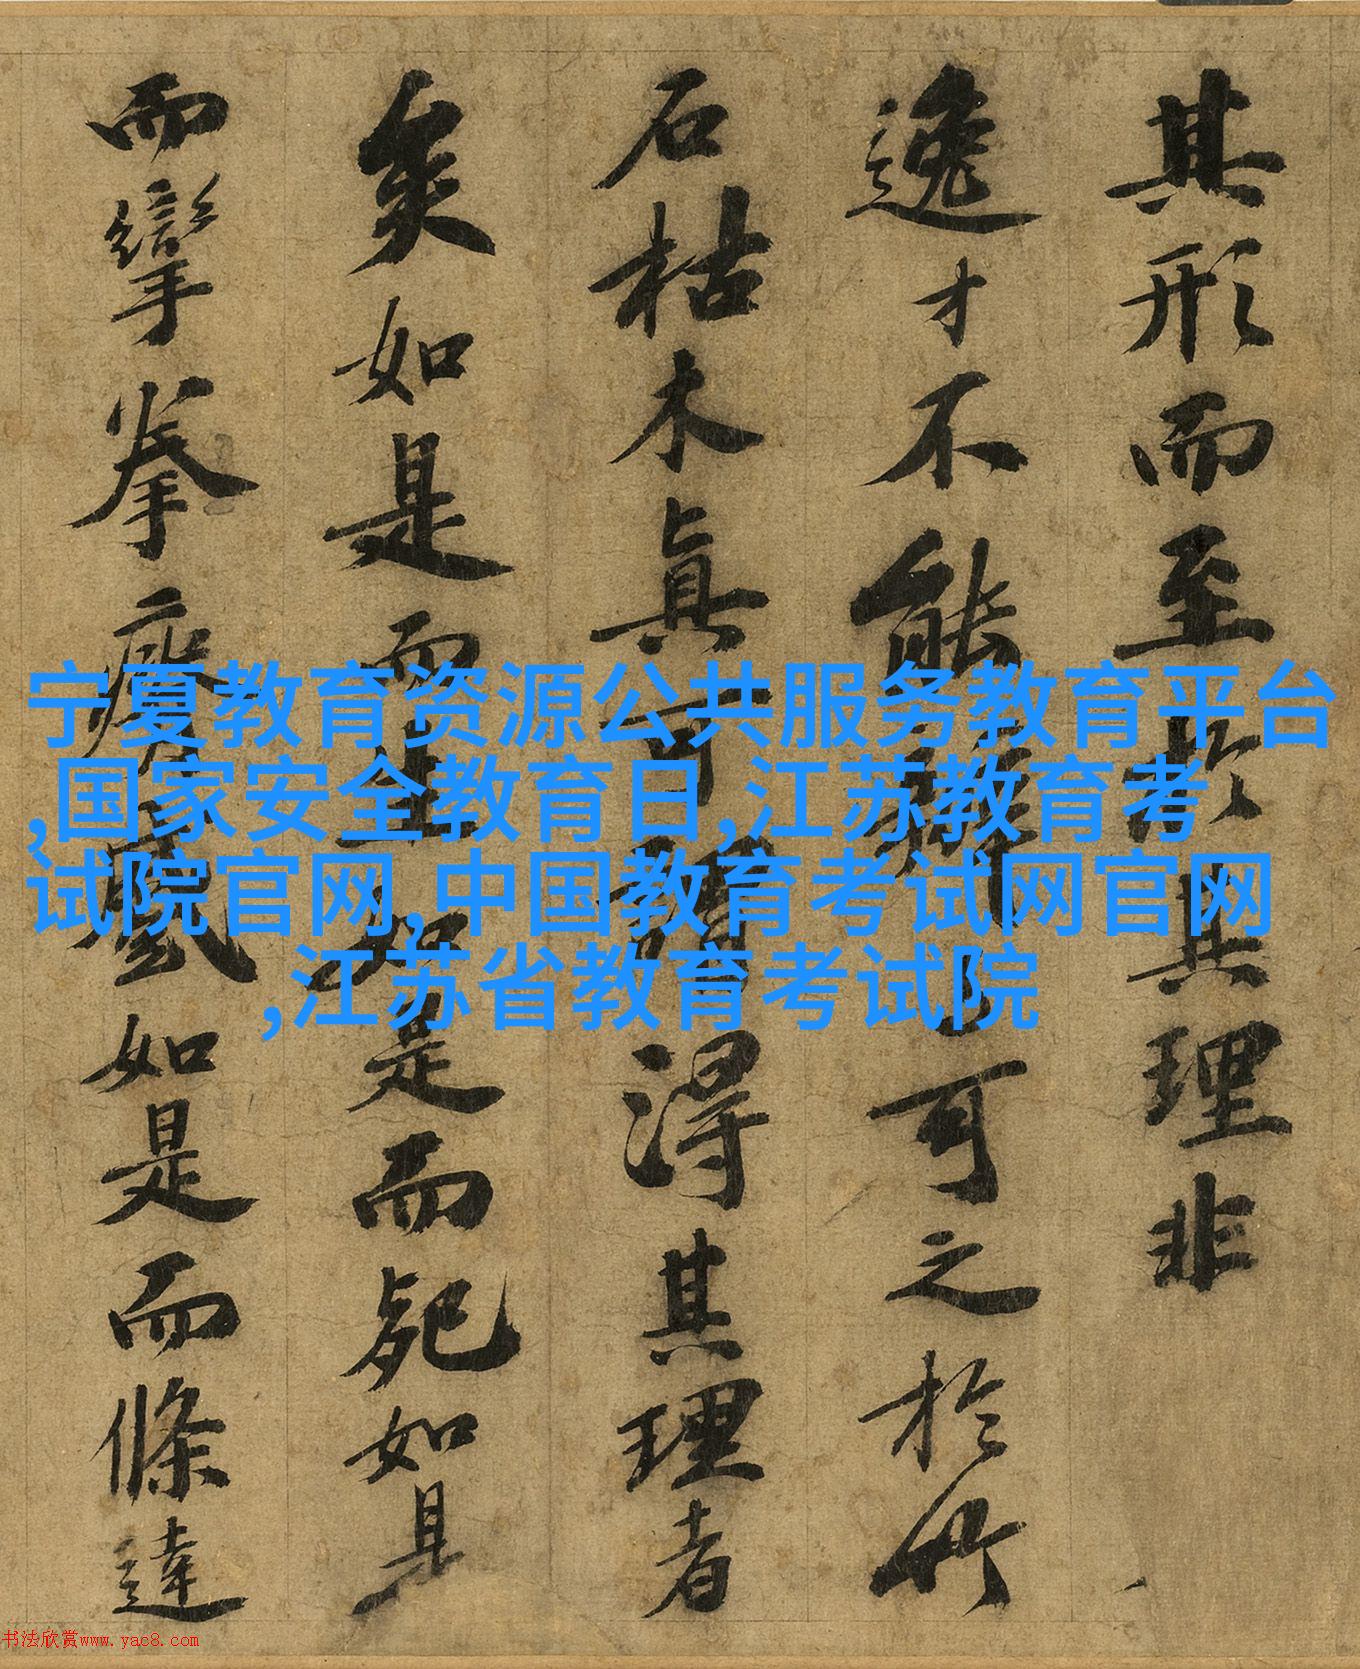 其形而至於其理非
逸才不能辨與可之於竹
石枯木真可謂得其理者
矣如是而生如是而死如是
而攣拳瘠蹙如是而條達
宁夏教育资源公共服务教育平台
,国家安全教育日,江苏教育考
试院官网,中国教育考试网官网
,江苏省教育考试院
书法欣赏www.yac8.com